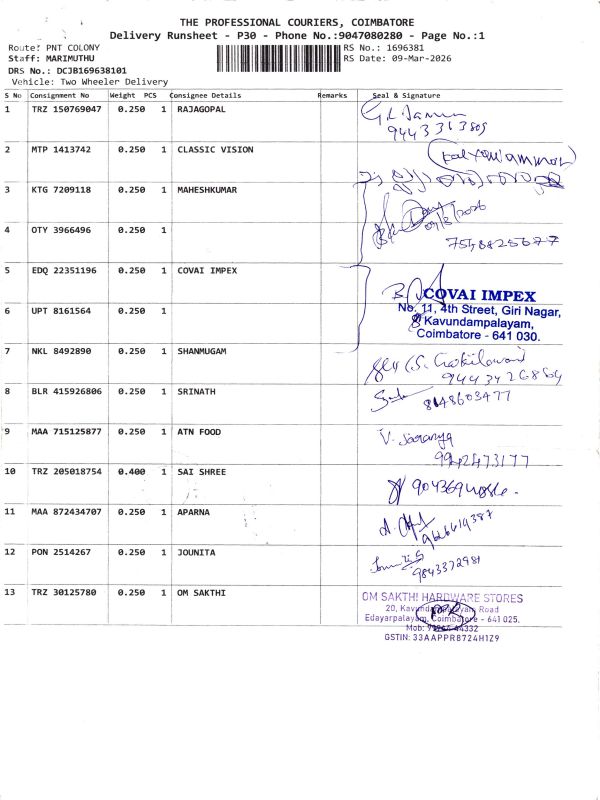 THE PROFESSIONAL COURIERS, COIMBATORE
Delivery Runsheet - P30 - Phone No.:9047080280 - Page No.:1
Route: PNT COLONY
RS No.: 1696381
Staff: MARIMUTHU
RS Date: 09-Mar-2026
DRS No.: DCJB169638101
Vehicle: Two Wheeler Delivery
S No Consignment No Weight PCS Consignee Details Remarks Seal & Signature
1 TRZ 150769047 0.250 1 RAJAGOPAL
2 MTP 1413742 0.250 1 CLASSIC VISION
3 KTG 7209118 0.250 1 MAHESHKUMAR
4 OTY 3966496 0.250 1
5 EDQ 22351196 0.250 1 COVAI IMPEX
COVAI IMPEX
No. 11, 4th Street, Giri Nagar,
Kavundampalayam,
Coimbatore - 641 030.
6 UPT 8161564 0.250 1
7 NKL 8492890 0.250 1 SHANMUGAM
8 BLR 415926806 0.250 1 SRINATH
8148603477
9 MAA 715125877 0.250 1 ATN FOOD
V. Saranya
9942473177
10 TRZ 205018754 0.400 1 SAI SHREE
11 MAA 872434707 0.250 1 APARNA
9626619387
12 PON 2514267 0.250 1 JOUNITA
9843372981
13 TRZ 30125780 0.250 1 OM SAKTHI
OM SAKTHI HARDWARE STORES
20, Kavundampalayam Road
Edayarpalayam, Coimbatore - 641 025.
Mob: 44332
GSTIN: 33AAPPR8724H1Z9